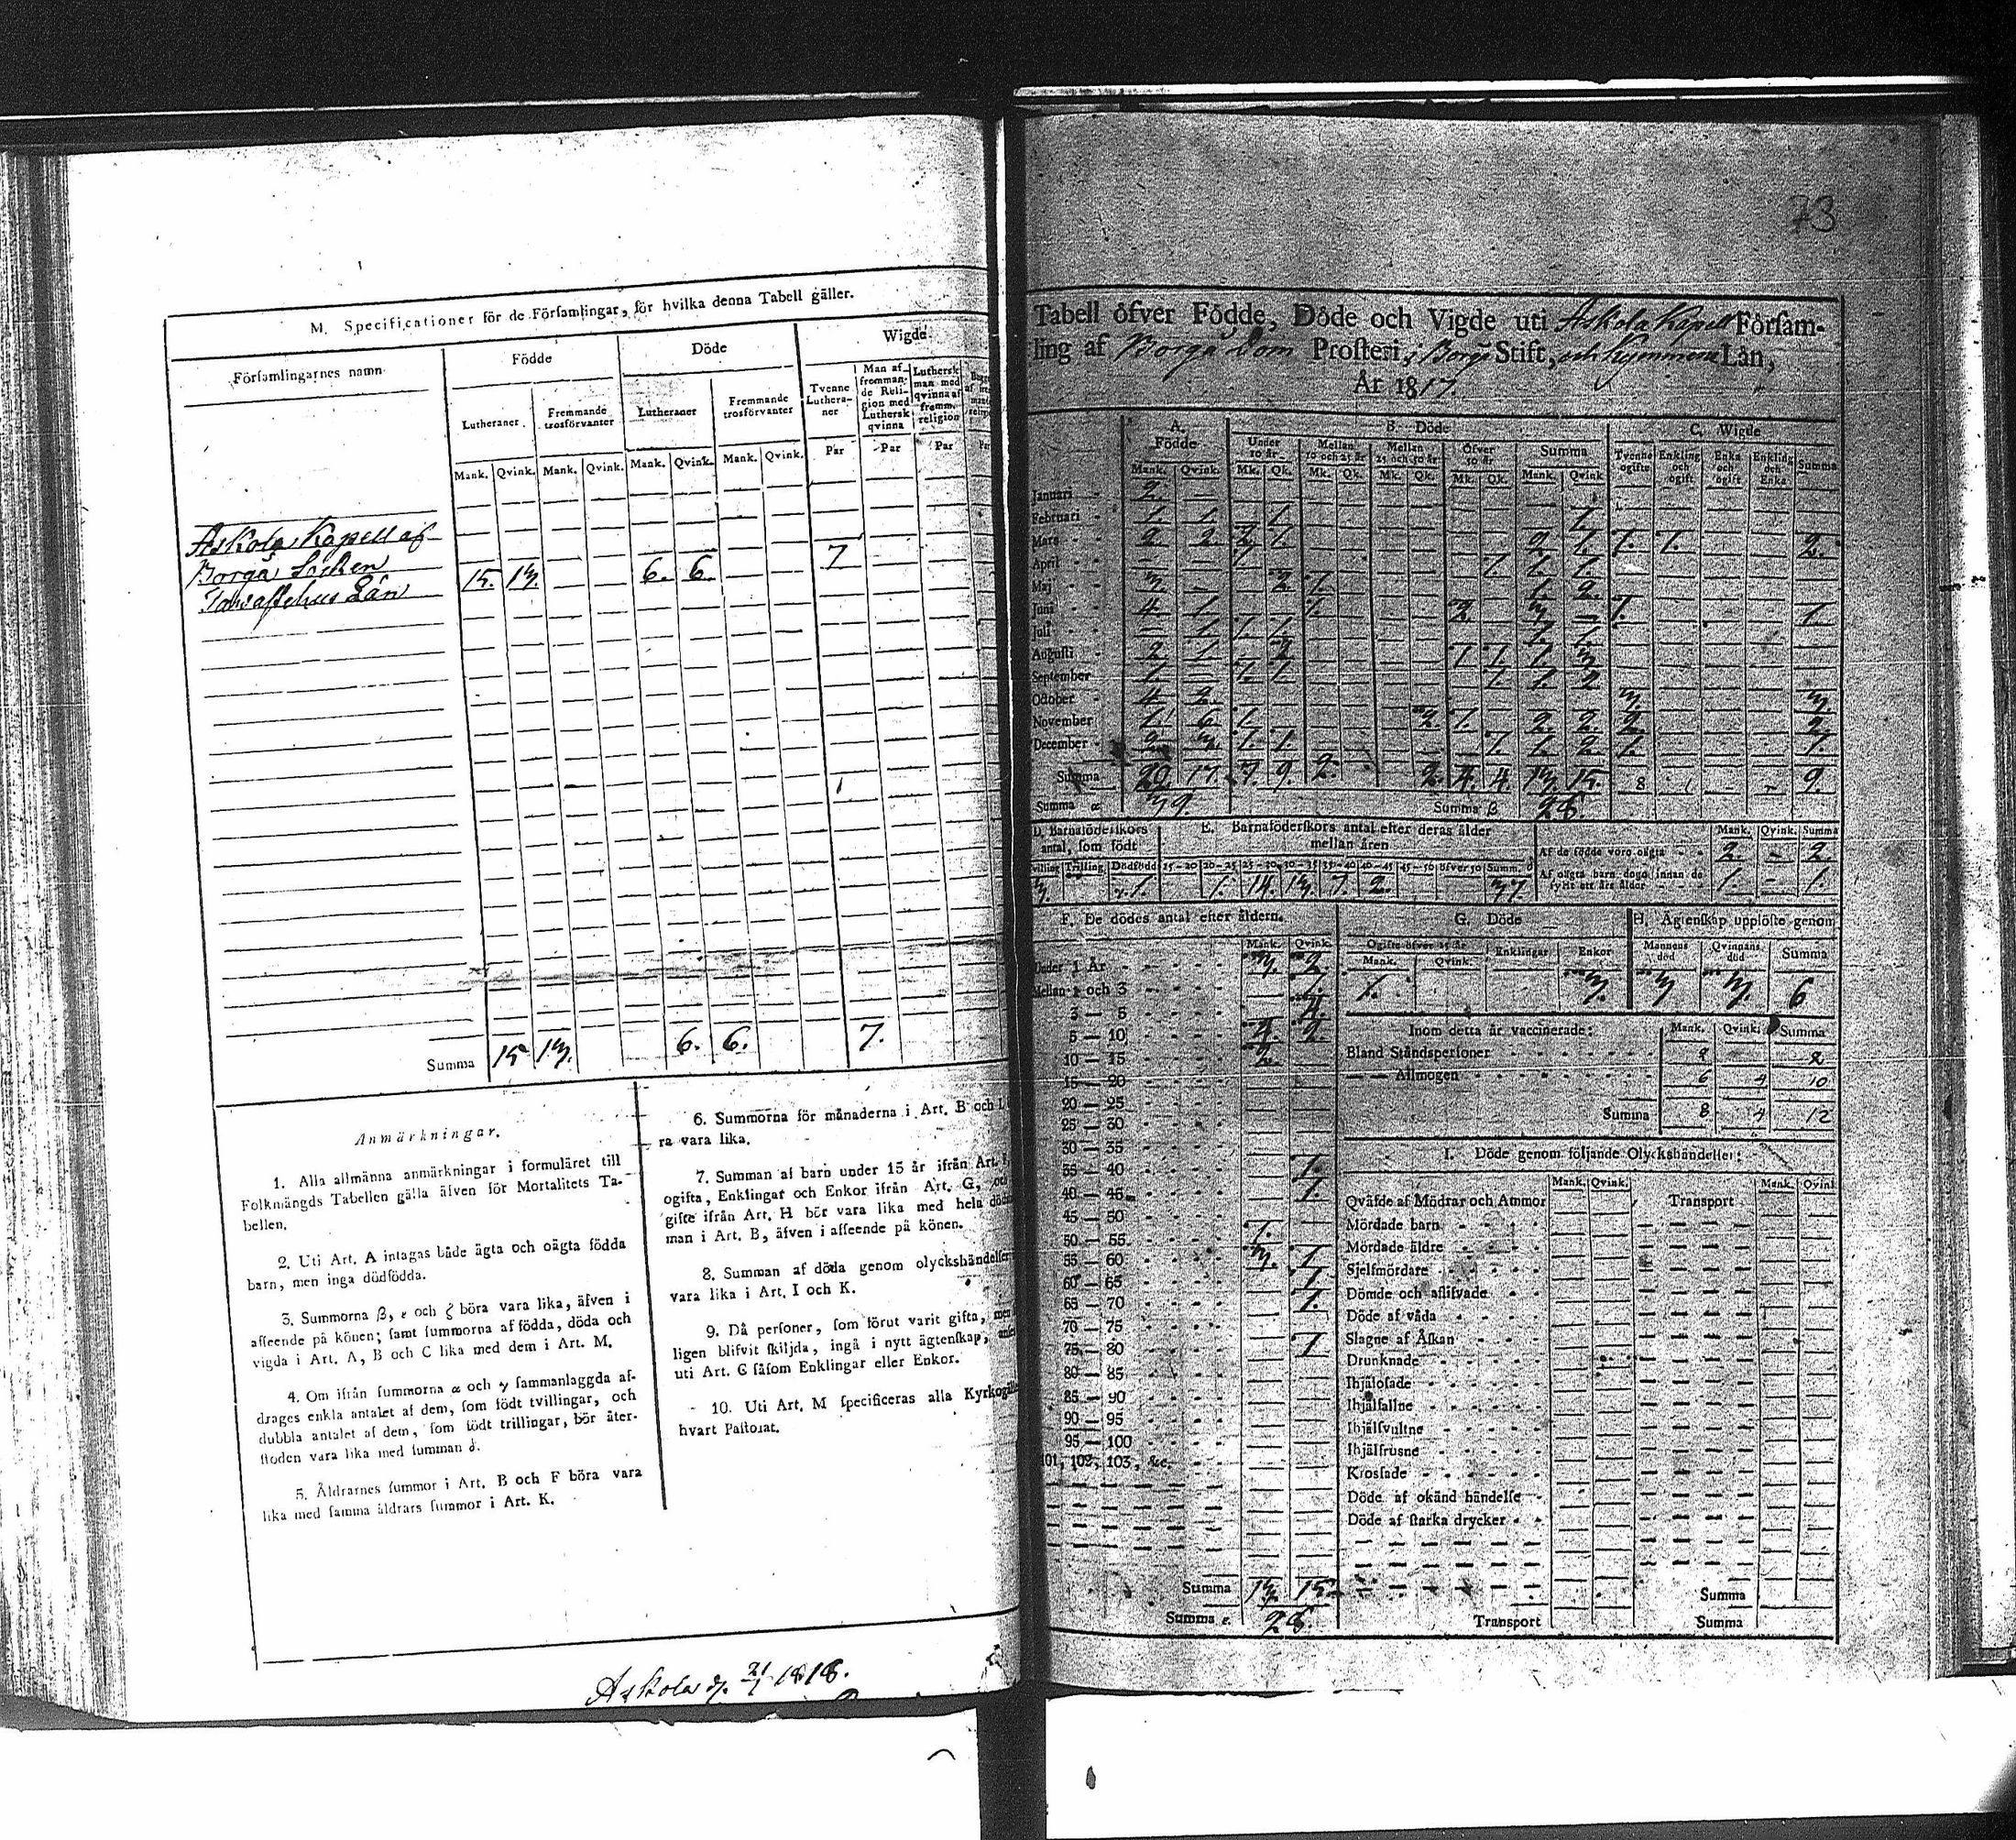 M. Specificationer för de Församlingar, för hvilka denna Tabell gäller.
Församlingarnes namn
Födde
Döde
Wigde
Lutheraner.
Fremmande trosförvanter
Lutheraner
Fremmande trosförvanter
Tvenne Lutheraner
Man af fremmande Religion med Luthersk qvinna
Luthersk man med qvinna af fremm. religion
Mank. Qvink. Mank. Qvink. Mank. Qvink. Mank. Qvink. Par Par Par
Askola Kapell af
Borgå Socken 15. 13. 6. 6. 7
Län
Summa 15 13. 6. 6. 7.
Anmärkningar.
1. Alla allmänna anmärkningar i formuläret till
Folkmängds Tabellen gälla äfven för Mortalitets Ta-
bellen.
2. Uti Art. A intagas både ägta och oägta födda
barn, men inga dödfödda.
3. Summorna β, ε och ζ böra vara lika, äfven i
afseende på könen; samt summorna af födda, döda och
vigda i Art. A, B och C lika med dem i Art. M.
4. Om ifrån summorna α och γ sammanlagda af-
drages enkla antalet af dem, som födt tvillingar, och
dubbla antalet af dem, som födt trillingar, bör åter-
stoden vara lika med summan δ.
5. Åldrarnes summor i Art. B och F böra vara
lika med samma åldrars summor i Art. K.
6. Summorna för månaderna i Art. B och
ra vara lika.
7. Summan af barn under 15 år ifrån Art.
ogifta, Enklingar och Enkor ifrån Art. G, och
gifte ifrån Art. H bör vara lika med hela
man i Art. B, äfven i afseende på könen.
8. Summan af döda genom olyckshändelser
vara lika i Art. I och K.
9. Då personer, som förut varit gifta, men
ligen blifvit skiljda, ingå i nytt ägtenskap,
uti Art. C såsom Enklingar eller Enkor.
10. Uti Art. M specificeras alla
hvart Pastorat.
Askola d. 21/1 1818.
73
Tabell öfver Födde, Döde och Vigde uti Askola Kapell Församling
af Borgå Dom Prosteri, i Borgå Stift, och Kymmene Län,
År 1817.
A. Födde
B. Döde
C. Wigde
Under 10 år
Mellan 10 och 25 år
Mellan 25 och 50 år
Öfver 50 år
Summa
Tvenne ogifte
Enkling och ogift
Enka och ogift
Enkling och Enka
Summa
Mank. Qvink. Mk. Qk. Mk. Qk. Mk. Qk. Mk. Qk. Mank. Qvink
Januari 2.
Februari 1. 1. 1. 1.
Mars 2. 2. 2. 1. 2. 1. 1. 1. 2.
April 1. 1. 1. 1.
Maj 3. 2. 1. 1. 2.
Juni 4. 1. 1. 2. 3. 1. 1.
Juli 1. 1. 1. 1. 1.
Augusti 2. 1. 2. 1. 1. 1. 3.
September 1. 1. 1. 1. 1. 2
Oktober 4. 2. 3. 3.
November 1. 6. 1. 2. 1. 2. 2. 2. 2.
December 2. 3. 1. 1. 1. 1. 2. 1. 1.
Summa 20 17. 7. 9. 2. 2. 4. 4. 13. 15. 8 1 9.
Summa α
Summa β 28.
D. Barnaföderskors antal, som födt
E. Barnaföderskors antal efter deras ålder mellan åren
Mank. Qvink. Summa
Af de födde voro oägta 2. - 2.
Af oägta barn dogo innan de fyllt ett års ålder 1. - 1.
Trilling Dödfödd 15-20 20-25 25-30 30-35 35-40 40-45 45-50 öfver 50 Summ. δ
3. 1. 1. 14. 13. 7. 2. 37.
F. De dödes antal efter åldern.
Mank. Qvink.
Under 1 År 3. 2.
Mellan 1 och 3 1.
3 - 5 4.
5 - 10 4. 2.
10 - 15 2.
15 - 20
20 - 25
25 - 30
30 - 35
35 - 40 1.
40 - 45 1.
45 - 50
50 - 55 1.
55 - 60 3. 1.
60 - 65 1.
65 - 70 1.
70 - 75
75 - 80 1
80 - 85
85 - 90
90 - 95
95 - 100
101, 102, 103, &c.
Summa 13. 15.
Summa ε. 28.
G. Döde
Ogifte öfver 15 år
Enklingar
Enkor
Mank. Qvink.
1. 3.
H. Ägtenskap upplöste genom
Mannens död
Qvinnans död
Summa
3 3. 6
Inom detta år vaccinerade: Mank. Qvink. Summa
Bland Ståndspersoner 2 2
- - Allmogen 6 4 10
Summa 8 4 12
I. Döde genom följande Olyckshändelser:
Mank. Qvink. Mank. Qvink
Qväfde af Mödrar och Ammor
Transport
Mördade barn
Mördade äldre
Sjelfmördare
Dömde och aflifvade
Döde af våda
Slagne af Åskan
Drunknade
Ihjälofade
Ihjälfallne
Ihjälsvultne
Ihjälfrusne
Krossade
Döde af okänd händelse
Döde af starka drycker
Summa
Transport
Summa